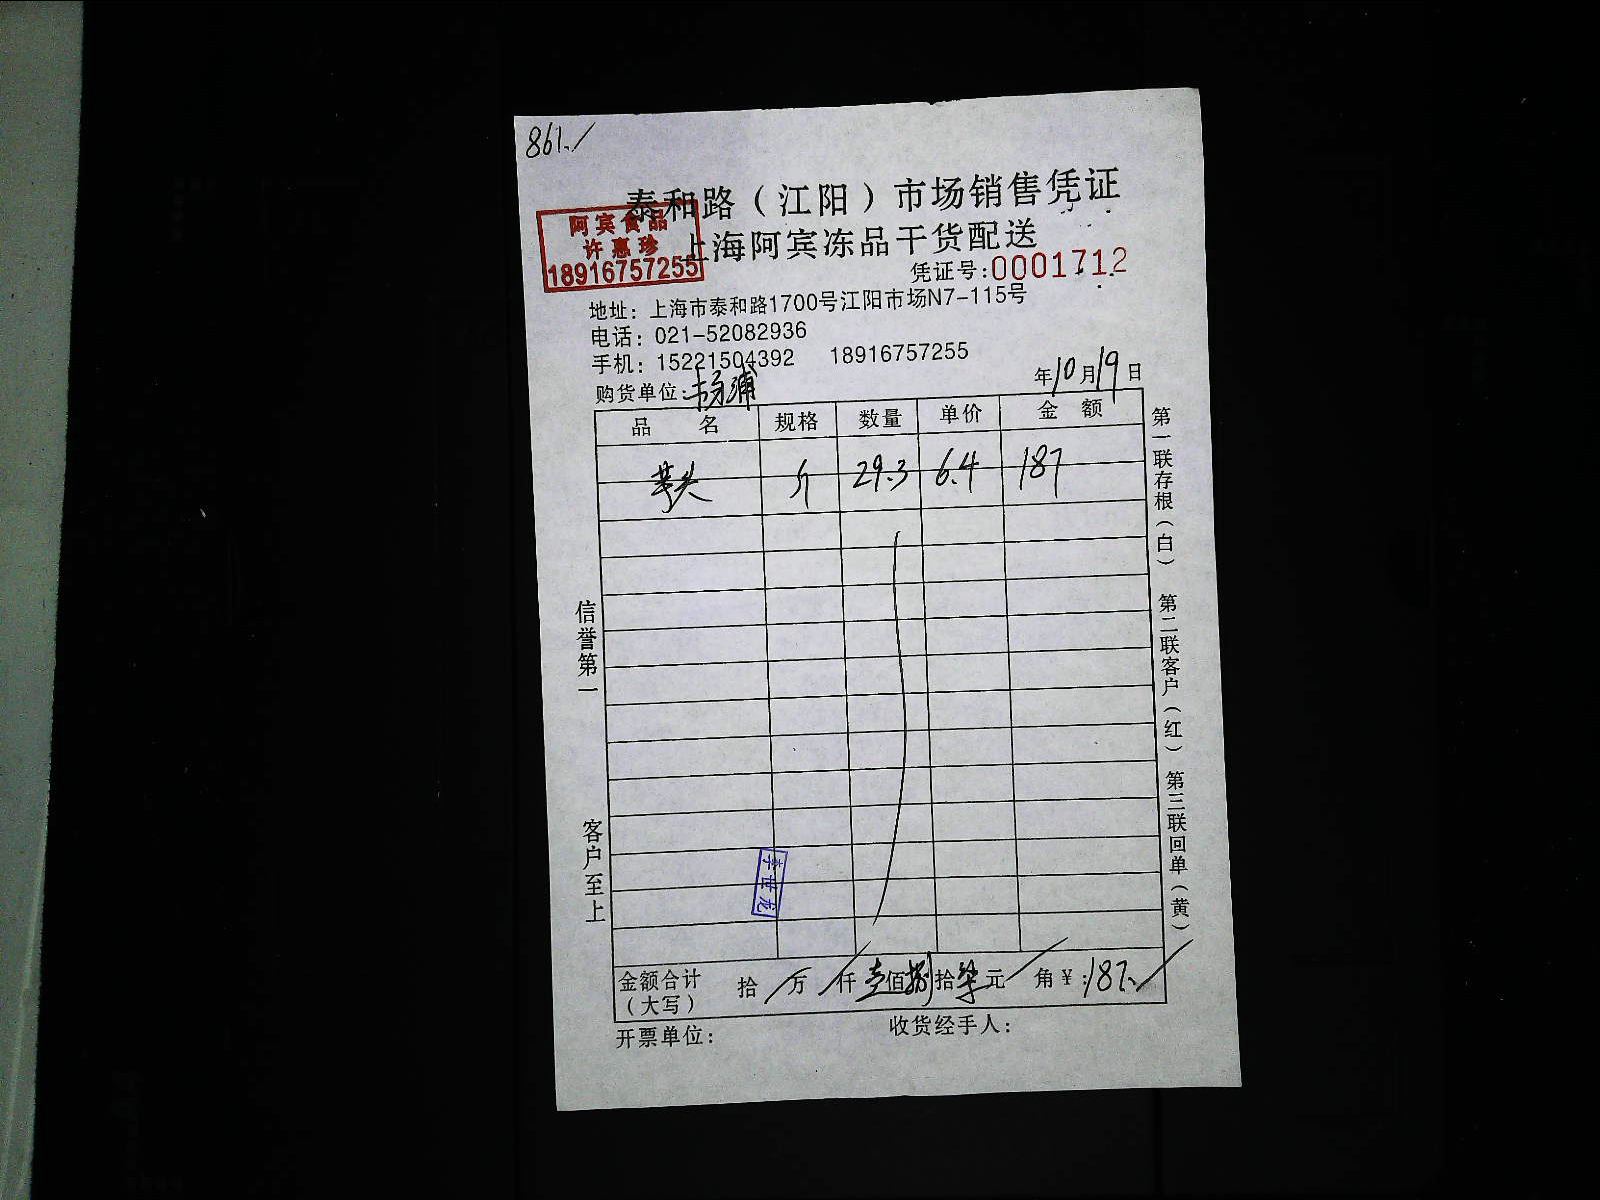 861./
泰和路（江阳）市场销售凭证
阿宾食品
许惠珍
18916757255
上海阿宾冻品干货配送
凭证号:0001712
地址：上海市泰和路1700号江阳市场N7-115号
电话：021-52082936
手机：15221504392 18916757255
购货单位:杨浦 年10月19日
品 名 规格 数量 单价 金 额
芋头 斤 29.3 6.4 187
信誉第一
客户至上
第一联存根（白） 第二联客户（红） 第三联回单（黄）
李世龙
金额合计（大写） 拾/万/仟壹佰捌拾柒元/角¥:187./
开票单位： 收货经手人：